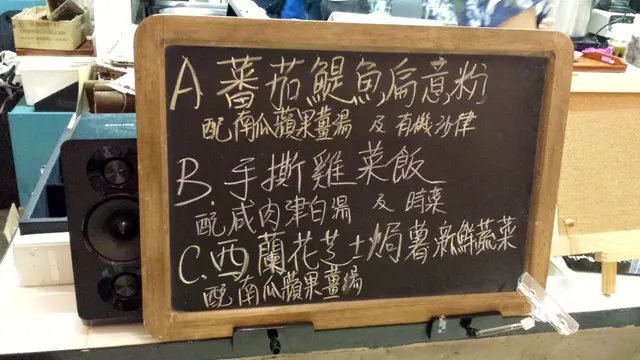 A 蕃茄鯷魚扁意粉
配南瓜蘋果薑湯 及 有機沙律
B. 手撕雞菜飯
配咸肉津白湯 及 時菜
C. 西蘭花芝士焗薯新鮮蔬菜
配南瓜蘋果薑湯